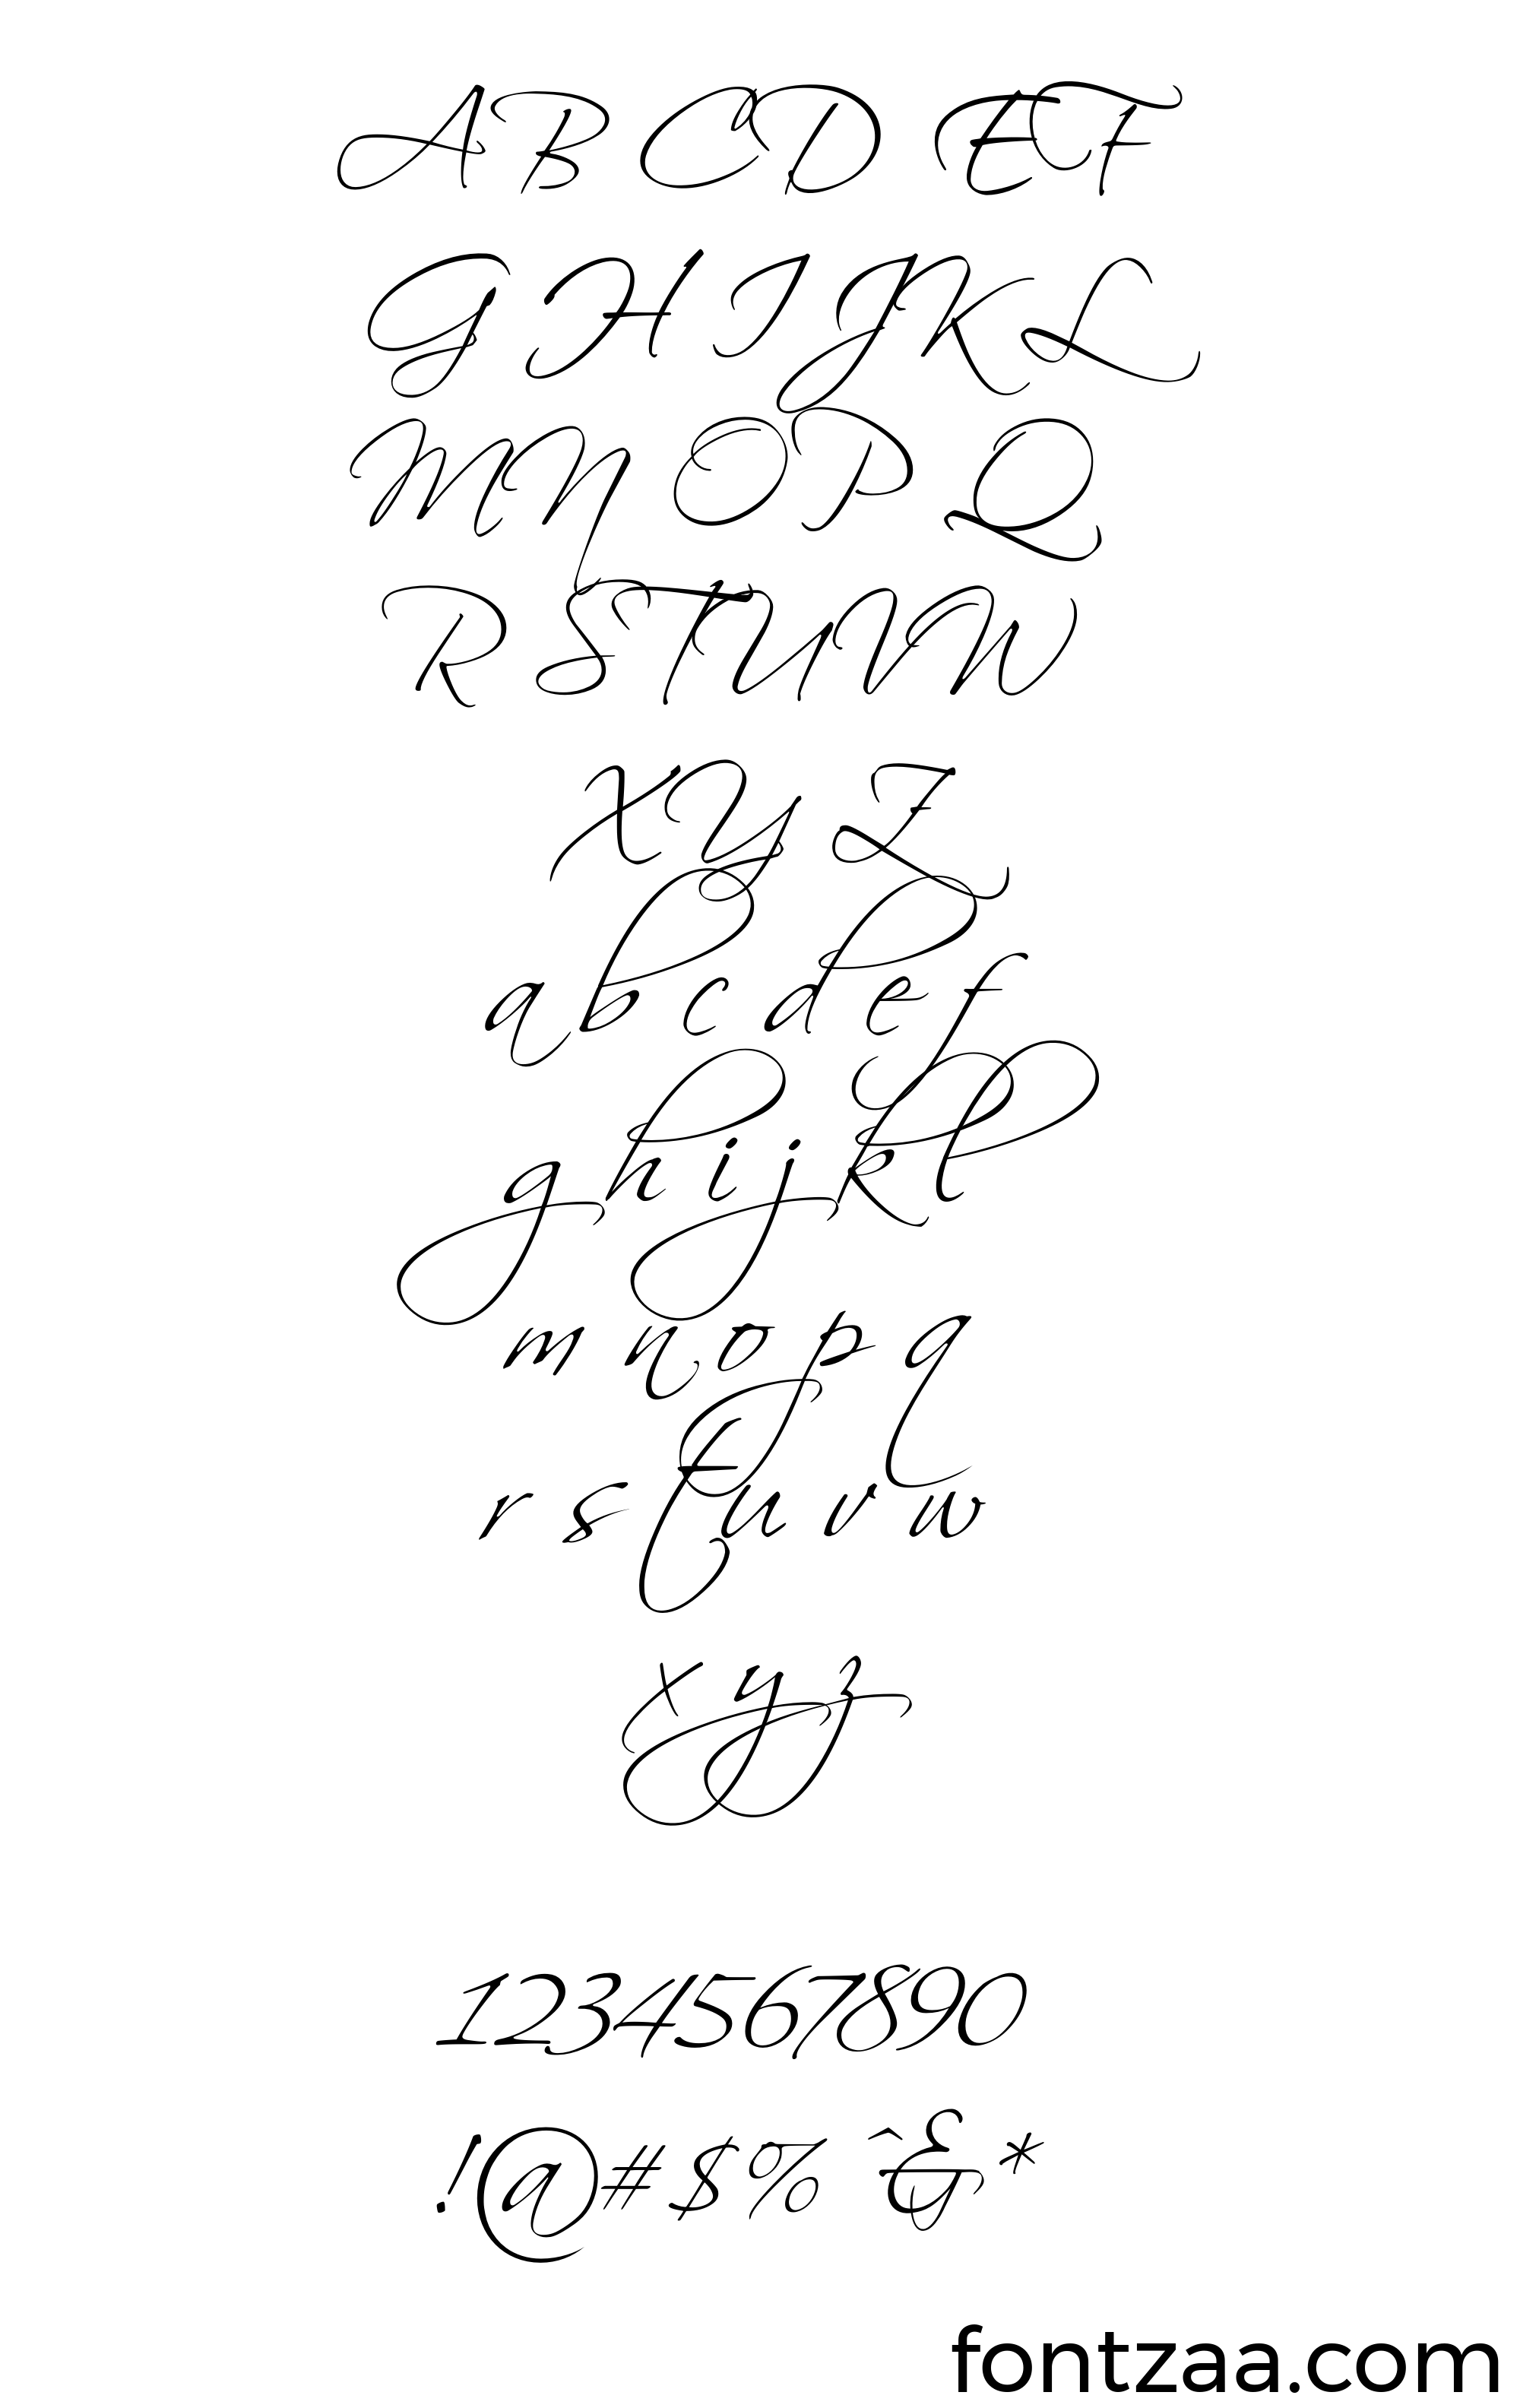 A B C D E F
G H I J K L
M N O P Q
R S T U V W
X Y Z
a b c d e f
g h i j k l
m n o p q
r s t u v w
x y z
1234567890
!@#$%^&*
fontzaa.com